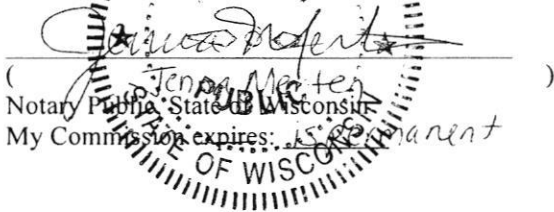 ( Jenna Merten )
Notary Public, State of Wisconsin
My Commission expires: is permanent
PUBLIC
STATE OF WISCONSIN